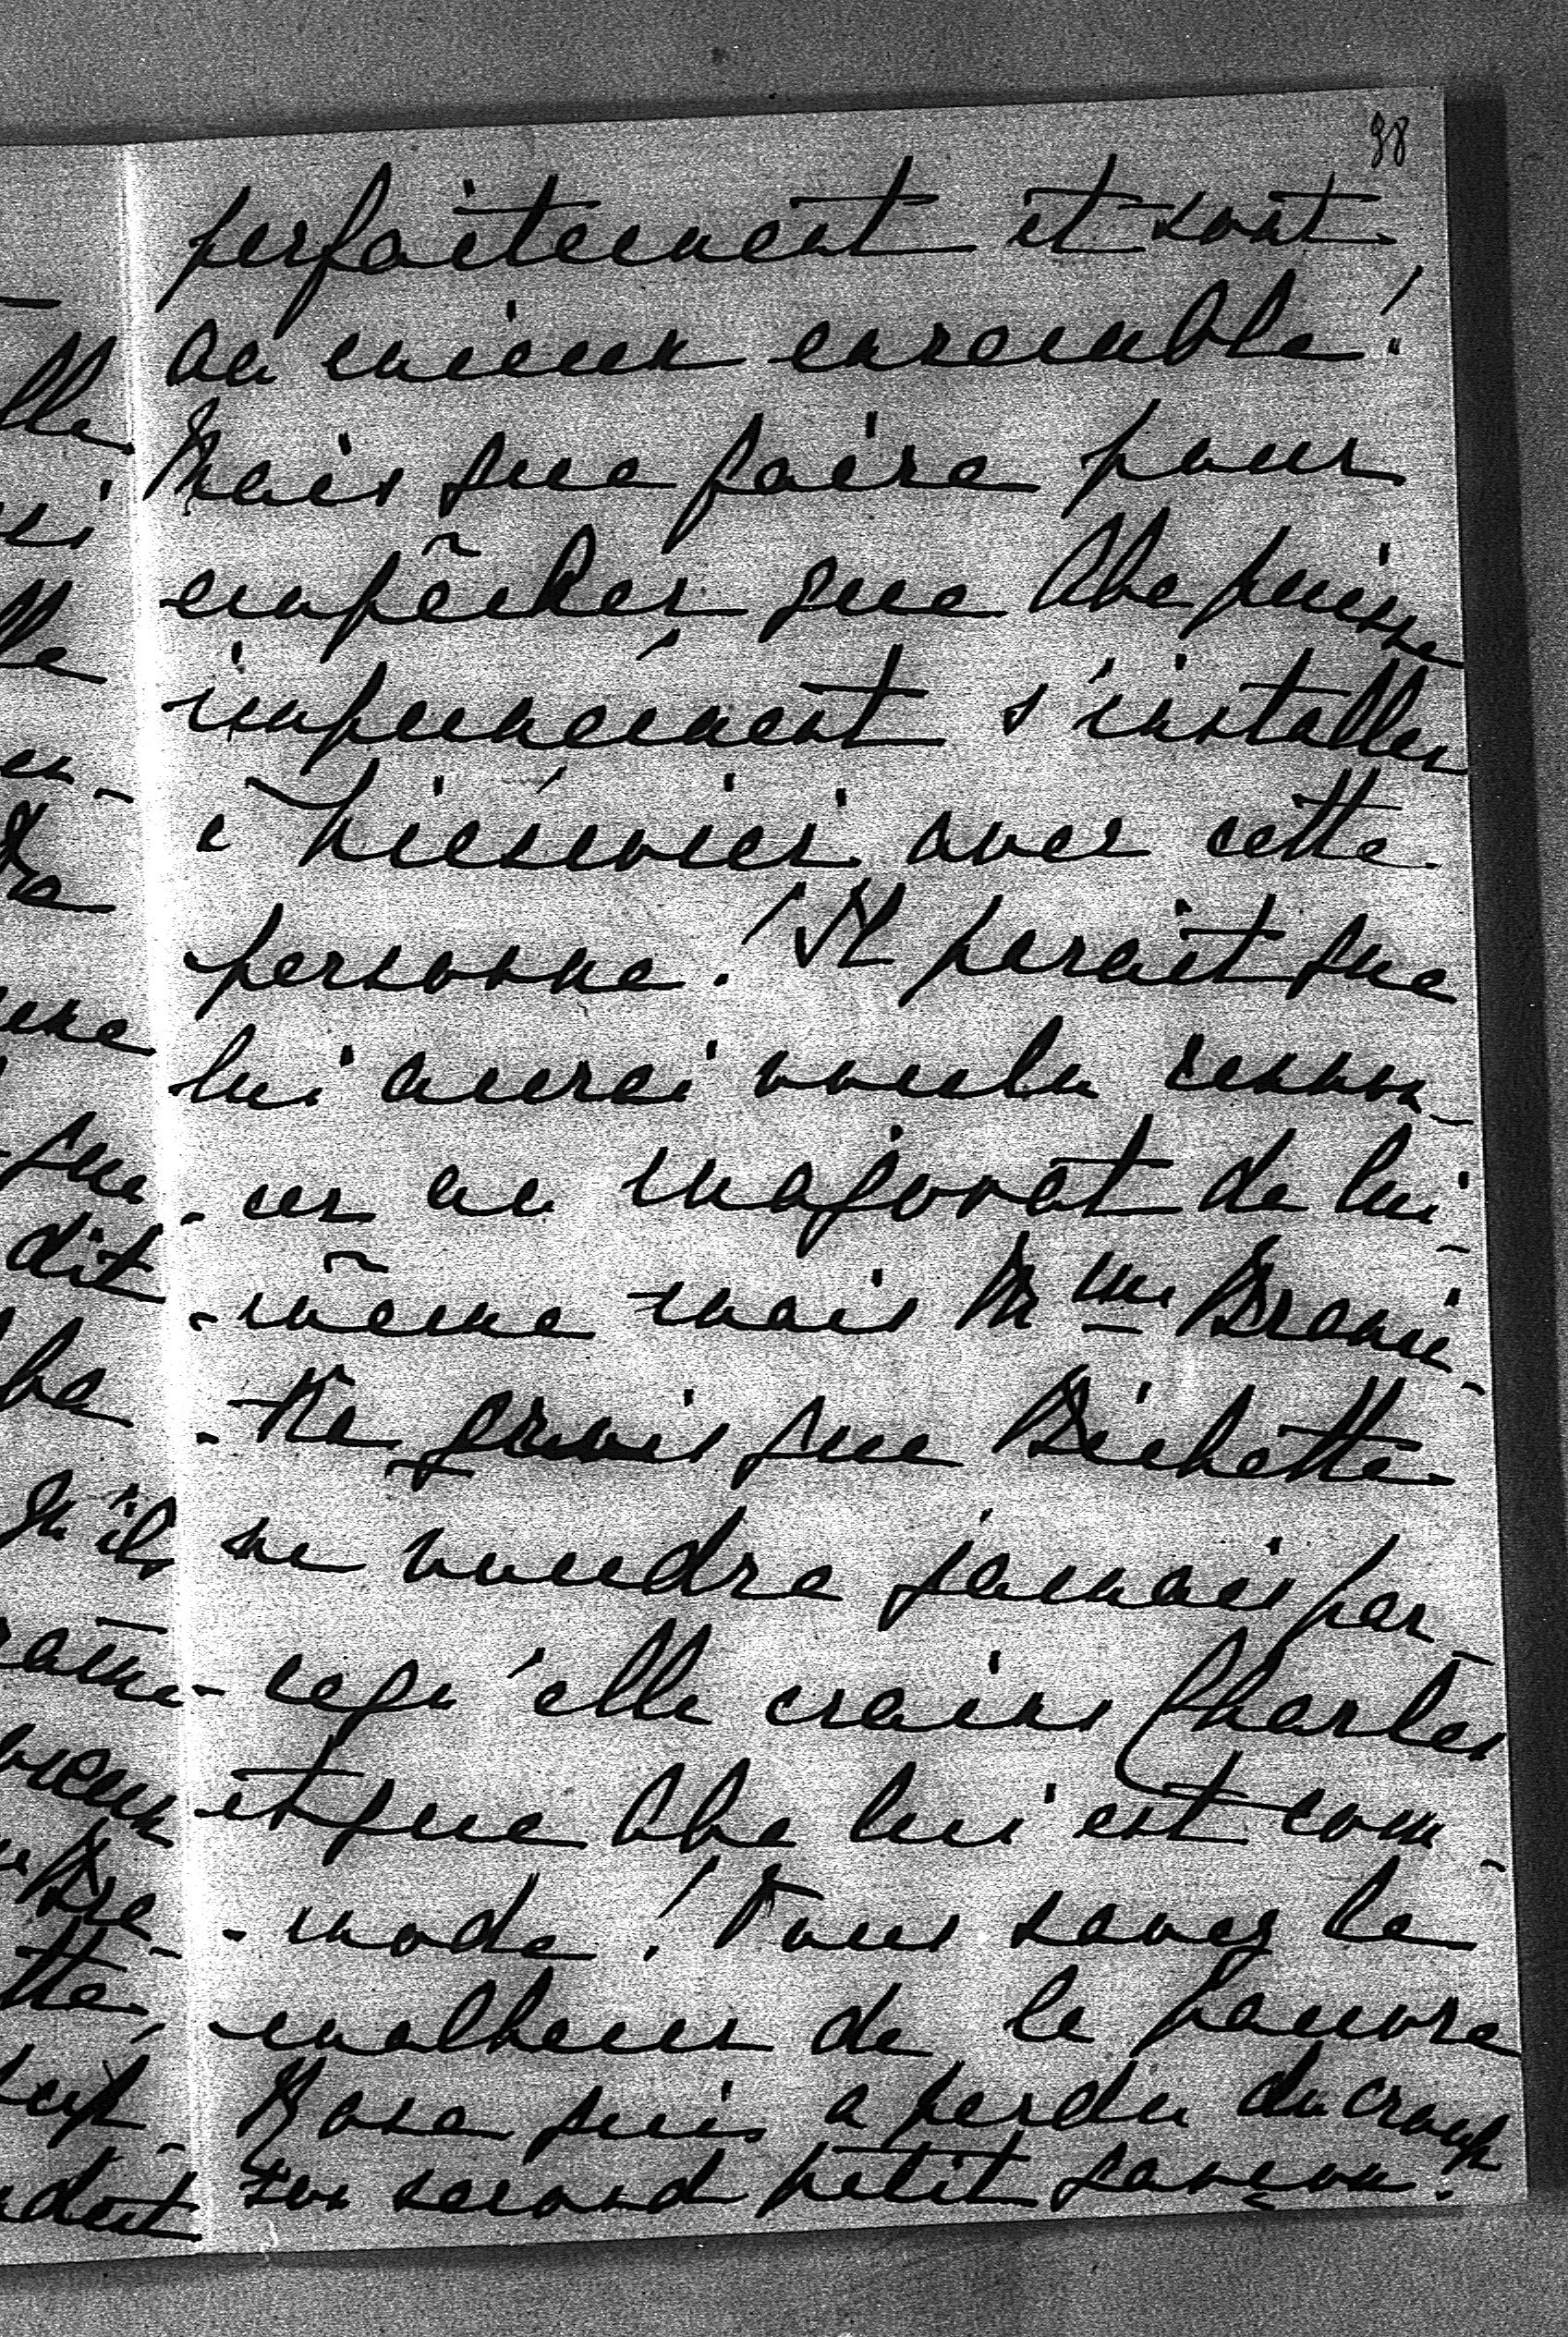 98
perfaitement et sont
au mieux ensemble!
Mais que faire pour
empêcher que Abe puisse
impunément s'installer
à Nieświeź avec cette
personne! Il parait que
lui aussi voulu renon-
- cer au majorat de lui-
- même mais Mme Brani-
- tka que Bichette
ne voudra jamais par-
- cequ'elle crains Charles
et que Abe lui est com-
- mode! Vous savez le
malheur de la pauvre
Rosa qui a perdu du croup
son second petit garçon.